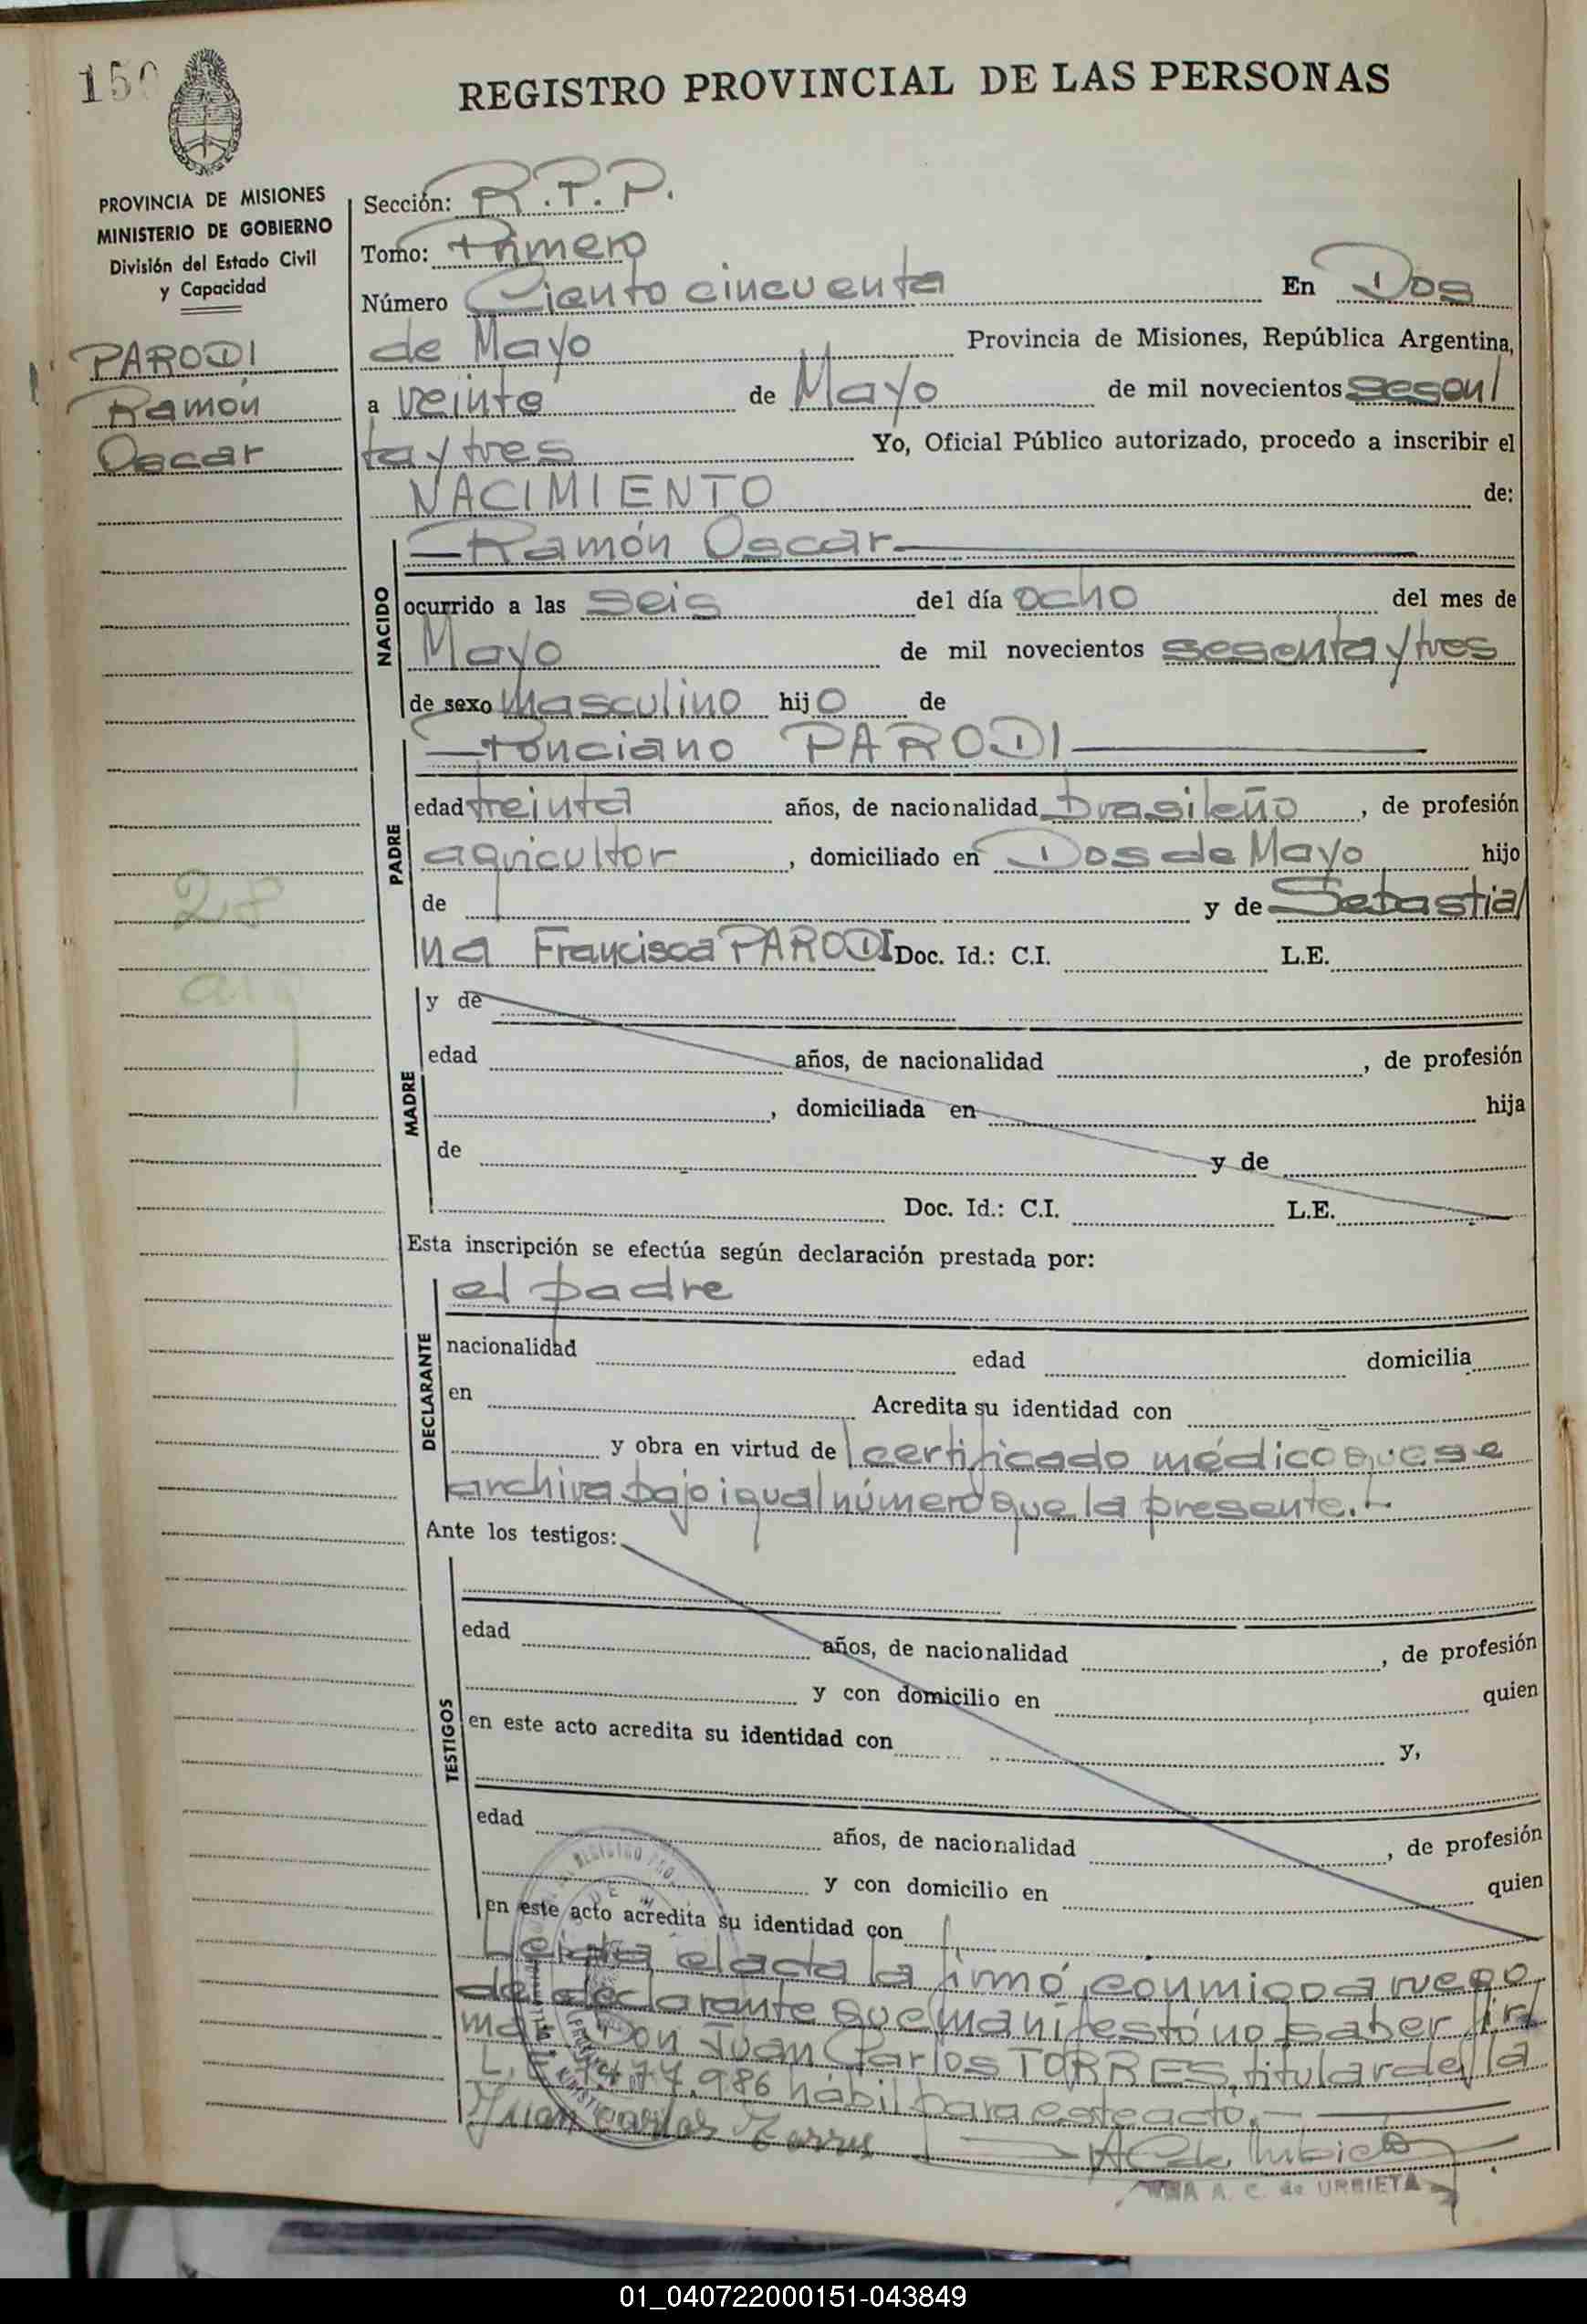 150
REGISTRO PROVINCIAL DE LAS PERSONAS
PROVINCIA DE MISIONES
MINISTERIO DE GOBIERNO
División del Estado Civil
y Capacidad
PARODI
Ramón
Oscar
Sección: R.P.P.
Tomo: Primero
Número Ciento cincuenta En Dos
de Mayo Provincia de Misiones, República Argentina,
a veinte de Mayo de mil novecientos sesen
ta y tres Yo, Oficial Público autorizado, procedo a inscribir el
NACIMIENTO de:
NACIDO
Ramón Oscar
ocurrido a las seis del día ocho del mes de
Mayo de mil novecientos sesenta y tres
de sexo masculino hijo de
PADRE
Ponciano PARODI
edad treinta años, de nacionalidad brasileño, de profesión
agricultor, domiciliado en Dos de Mayo hijo
de y de Sebastia
na Francisca PARODI Doc. Id.: C.I. L.E.
28
MADRE
y de
edad años, de nacionalidad , de profesión
, domiciliada en hija
de y de
Doc. Id.: C.I. L.E.
Esta inscripción se efectúa según declaración prestada por:
DECLARANTE
el padre
nacionalidad edad domicilia
en Acredita su identidad con
y obra en virtud de certificado médico que se
archiva bajo igual número que la presente.-
Ante los testigos:
TESTIGOS
edad años, de nacionalidad , de profesión
y con domicilio en quien
en este acto acredita su identidad con y,
edad años, de nacionalidad , de profesión
y con domicilio en quien
en este acto acredita su identidad con
Leida el acta la firmó conmigo a ruego
del declarante que manifestó no saber fir
mar Don Juan Carlos TORRES, titular de la
L.E. 7.477.986 hábil para este acto.-
Juan Carlos Torres
A. C. de Urbieta
A. C. de URBIETA
01_040722000151-043849